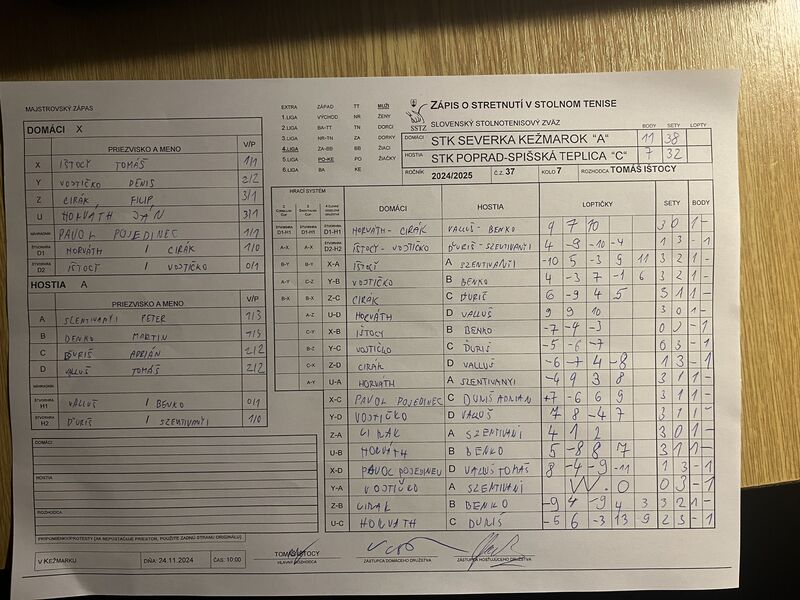 MAJSTROVSKÝ ZÁPAS
DOMÁCI X
PRIEZVISKO A MENO V/P
X IŠTOCY TOMÁŠ 1/1
Y VOJTIČKO DENIS 2/2
Z CIRÁK, FILIP 3/1
U HORVÁTH JÁN 3/1
NÁHRADNÍK PAVOL POJEDINEC 1/1
ŠTVORHRA D1 HORVÁTH / CIRÁK 1/0
ŠTVORHRA D2 IŠTOCY / VOJTIČKO 0/1
HOSTIA A
PRIEZVISKO A MENO V/P
A SZENTIVANYI PETER 1/3
B BENKO MARTIN 1/3
C ĎURIŠ ADRIÁN 2/2
D VALLUŠ TOMÁŠ 2/2
NÁHRADNÍK
ŠTVORHRA H1 VALLUŠ / BENKO 0/1
ŠTVORHRA H2 ĎURIŠ / SZENTIVANYI 1/0
DOMÁCI:
HOSTIA:
ROZHODCA:
PRIPOMIENKO/PROTESTY (AK NEPOSTAČUJE PRIESTOR, POUŽITE ZADNÚ STRANU ORIGINÁLU)
V KEŽMARKU DŇA: 24.11.2024 ČAS: 10:00
EXTRA ZÁPAD TT MUŽI
1.LIGA VÝCHOD NR ŽENY
2.LIGA BA-TT TN DORCI
3.LIGA NR-TN ZA DORKY
4.LIGA ZA-BB BB ŽIACI
5.LIGA PO-KE PO ŽIAČKY
6.LIGA BA KE
SSTZ
ZÁPIS O STRETNUTÍ V STOLNOM TENISE
SLOVENSKÝ STOLNOTENISOVÝ ZVÄZ
BODY SETY LOPTY
DOMÁCI STK SEVERKA KEŽMAROK "A" 11 38
HOSTIA STK POPRAD-SPIŠSKÁ TEPLICA "C" 7 32
ROČNÍK 2024/2025 Č.Z. 37 KOLO 7 ROZHODCA TOMÁŠ IŠTOCY
HRACÍ SYSTÉM DOMÁCI HOSTIA LOPTIČKY SETY BODY
ŠTVORHRA D1-H1 ŠTVORHRA D1-H1 ŠTVORHRA D1-H1 HORVÁTH - CIRÁK VALLUŠ - BENKO 9 7 10 3 0 1 -
A-X A-X ŠTVORHRA D2-H2 IŠTOCY - VOJTIČKO ĎURIŠ - SZENTIVANYI 4 -9 -10 -4 1 3 - 1
B-Y B-Y X-A IŠTOCY A SZENTIVANYI -10 5 -3 9 11 3 2 1 -
A-Y C-Z Y-B VOJTIČKO B BENKO 4 -3 7 -1 6 3 2 1 -
B-X B-X Z-C CIRÁK C ĎURIŠ 6 -9 4 5 3 1 1 -
A-Z U-D HORVÁTH D VALLUŠ 9 9 10 3 0 1 -
C-Y X-B IŠTOCY B BENKO -7 -4 -3 0 3 - 1
B-Z Y-C VOJTIČKO C ĎURIŠ -5 -6 -7 0 3 - 1
C-X Z-D CIRÁK D VALLUŠ -6 -7 4 -8 1 3 - 1
A-Y U-A HORVÁTH A SZENTIVANYI -4 9 3 8 3 1 1 -
X-C PAVOL POJEDINEC C ĎURIŠ ADRIAN -6 6 9 3 1 1 -
Y-D VOJTIČKO D VALUŠ 7 8 -4 7 3 1 1 -
Z-A CIRÁK A SZENTIVANI 4 1 2 3 0 1 -
U-B HORVÁTH B BENKO 5 -8 8 7 3 1 1 -
X-D PAVOL POJEDINEC D VALUŠ TOMÁŠ 8 -4 -9 -11 1 3 - 1
Y-A VOJTIČKO A SZENTIVANI W.O 0 3 - 1
Z-B CIRAK B BENKO -9 4 -9 4 3 3 2 1 -
U-C HORVATH C DURIS -5 6 -3 13 -9 2 3 - 1
TOMÁŠ IŠTOCY
HLAVNÝ ROZHODCA ZÁSTUPCA DOMÁCEHO DRUŽSTVA ZÁSTUPCA HOSŤUJÚCEHO DRUŽSTVA